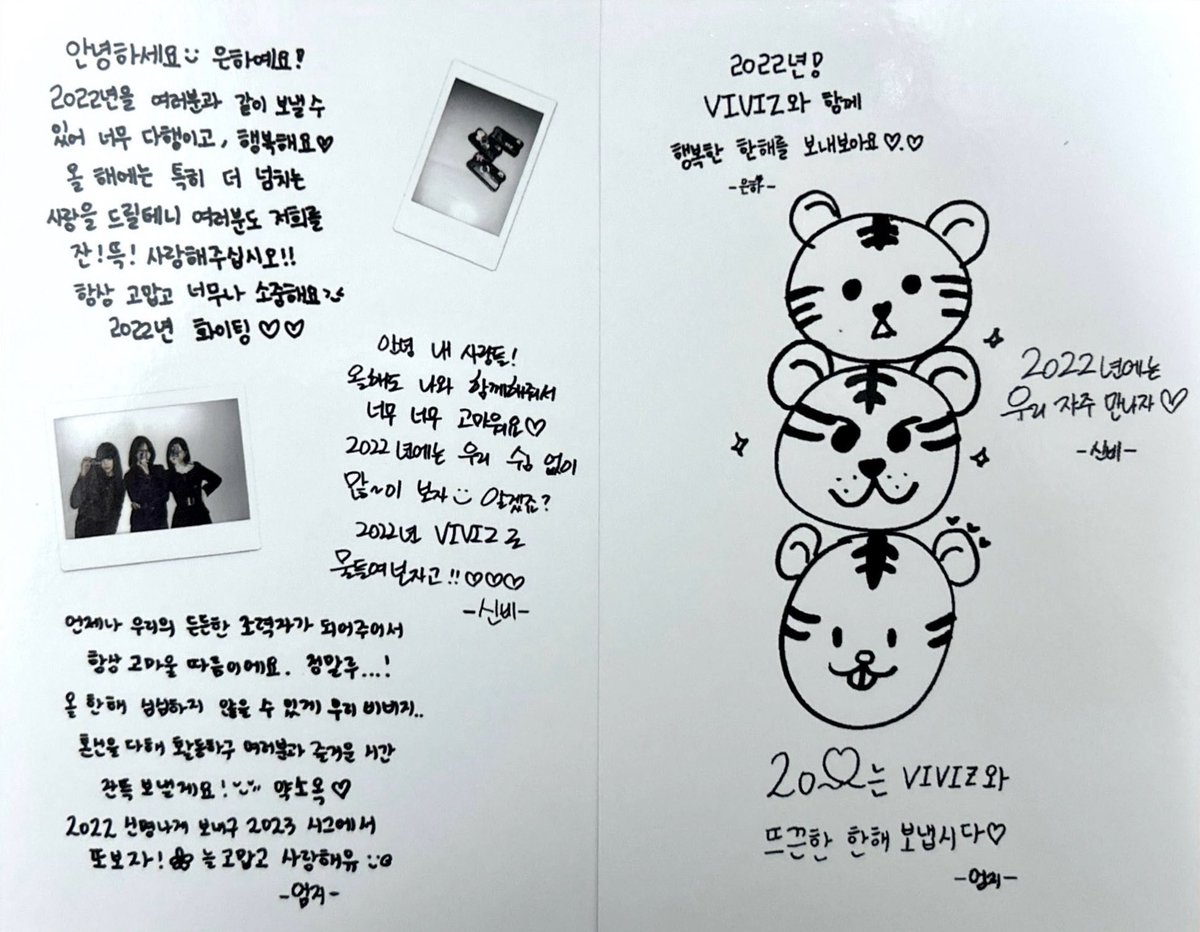 안녕하세요 은하예요!
2022년을 여러분과 같이 보낼 수
있어 너무 다행이고, 행복해요♡
올 해에는 특히 더 넘치는
사랑을 드릴테니 여러분도 저희를
잔!뜩! 사랑해주십시오!!
항상 고맙고 너무나 소중해요
2022년 화이팅♡♡
안녕 내 사랑들!
올해도 나와 함께해줘서
너무 너무 고마워요♡
2022년에는 우리 수없이
많~이 보자 알겠죠?
2022년 VIVIZ로
물들여넌자고!!♡♡♡
-신비-
언제나 우리의 든든한 조력자가 되어주어서
항상 고마울 따름이에요. 정말루...!
올 한해 섭섭하지 않을 수 있게 우리 비비지..
혼신을 다해 활동하구 여러분과 즐거운 시간
잔뜩 보낼게요! 약소옥♡
2022 신명나게 보내구 2023 시그에서
또보자! 늘 고맙고 사랑해유
-엄지-
2022년!
VIVIZ와 함께
행복한 한해를 보내보아요♡.♡
-은하-
2022년에는
우리 자주 만나자♡
-신비-
20♡는 VIVIZ와
뜨끈한 한해 보냅시다♡
-엄지-